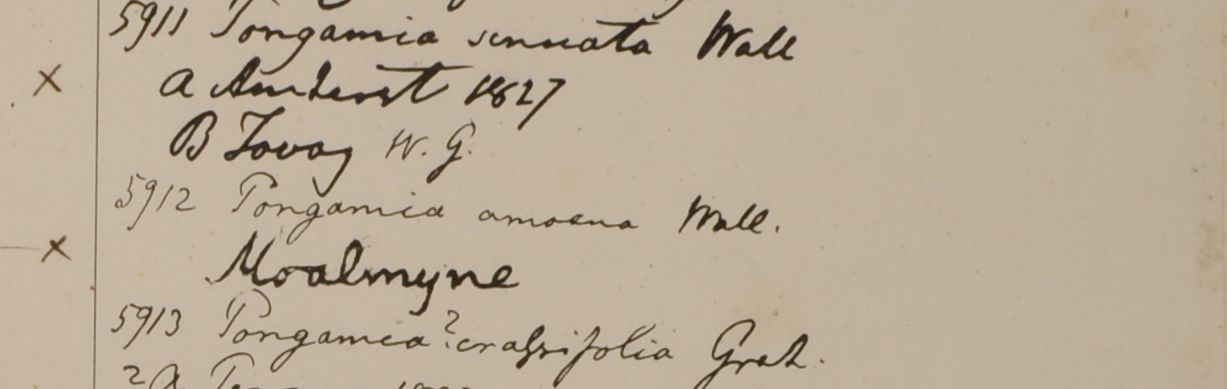 5911 Pongamia sinuata Wall
a Amherst 1827
B Tavoy W. G.
5912 Pongamia amoena Wall.
Moalmyne
5913 Pongamia? crassifolia Grah.